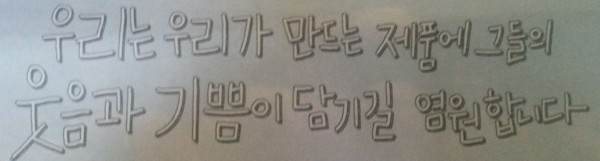 우리는 우리가 만드는 제품에 그들의
웃음과 기쁨이 담기길 염원합니다